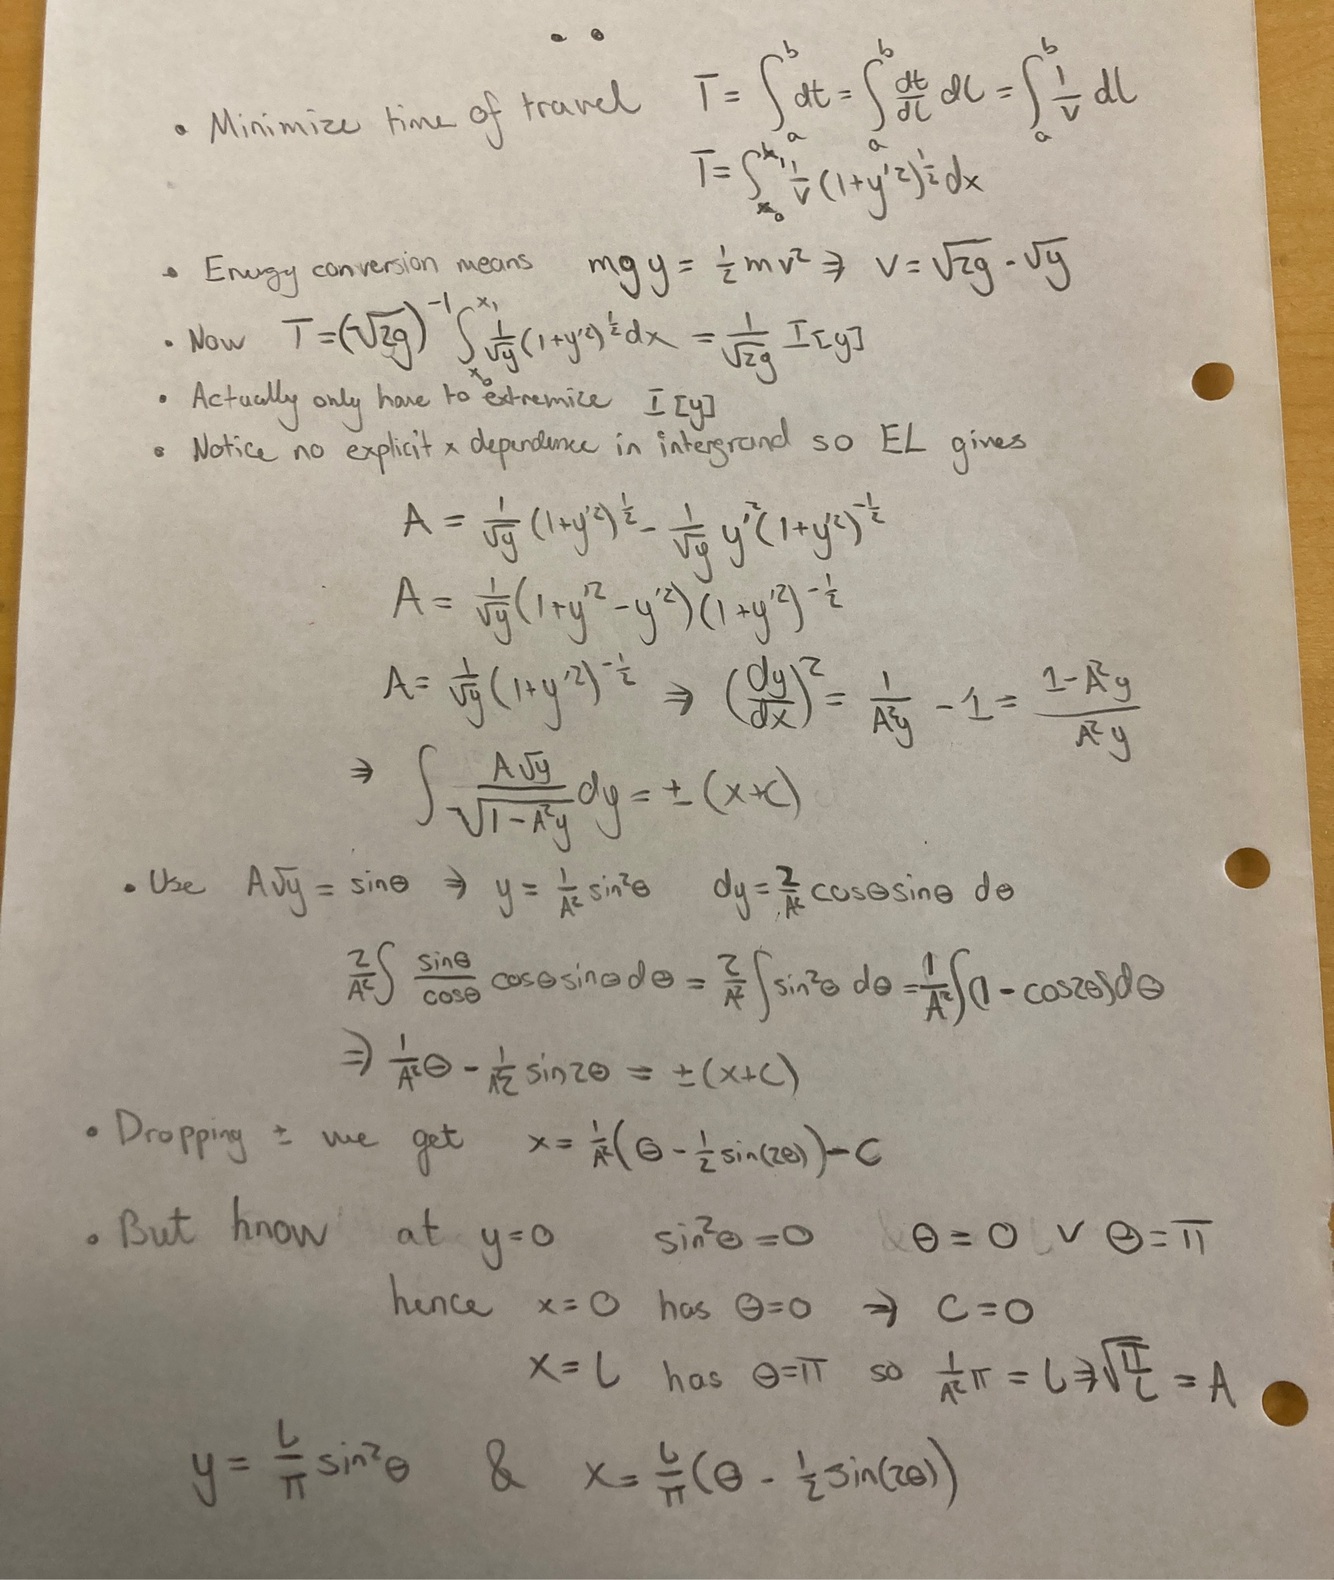 • Minimize time of travel T = ∫_a^b dt = ∫_a^b dt/dl dl = ∫_a^b 1/v dl
T = ∫_{x_0}^{x_1} 1/v (1+y'^2)^{1/2} dx
• Energy conversion means mgy = 1/2 mv^2 ⇒ v = √2g · √y
• Now T = (√2g)^{-1} ∫_{x_0}^{x_1} 1/√y (1+y'^2)^{1/2} dx = 1/√2g I[y]
• Actually only have to extremize I[y]
• Notice no explicit x dependence in intergrand so EL gives
A = 1/√y (1+y'^2)^{1/2} - 1/√y y'^2 (1+y'^2)^{-1/2}
A = 1/√y (1+y'^2 - y'^2)(1+y'^2)^{-1/2}
A = 1/√y (1+y'^2)^{-1/2} ⇒ (dy/dx)^2 = 1/A^2y - 1 = (1-A^2y)/(A^2y)
⇒ ∫ A√y/√(1-A^2y) dy = ± (x+c)
• Use A√y = sinθ ⇒ y = 1/A^2 sin^2θ dy = 2/A^2 cosθsinθ dθ
2/A^2 ∫ sinθ/cosθ cosθsinθdθ = 2/A^2 ∫ sin^2θ dθ = 1/A^2 ∫(1 - cos2θ)dθ
⇒ 1/A^2 θ - 1/A^2 2 sin2θ = ±(x+C)
• Dropping ± we get x = 1/A^2 (θ - 1/2 sin(2θ)) - C
• But know at y=0 sin^2θ = 0 θ = 0 ∨ θ = π
hence x=0 has θ=0 ⇒ C=0
x=L has θ=π so 1/A^2 π = L ⇒ √(π/L) = A
y = L/π sin^2θ & x = L/π (θ - 1/2 sin(2θ))